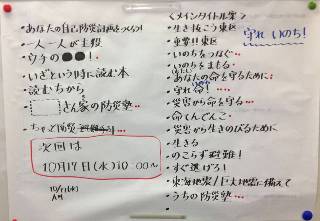 ・あなたの自己防災計画をつくろう!
・一人一人が主役
・ウチの●●!
・いざという時に読む本
・読むちから
・さん家の防災塾…
・ちょこ防災
次回は
10月17日(水)10:00~
<メインタイトル案>
・生き抜こう東区
・重要!!東区
・いのちをつなぐ…
・いのちをまもる…
・あなたの命を守るために:
・守れ 命!…
守れ いのち!
・災害から命を守る…
・命てんでんこ
・災害から生きのびるために
・生きる
・のこらず避難!
・すぐ逃げろ!
・東海地震/巨大地震に備えて
・うちの防災塾…